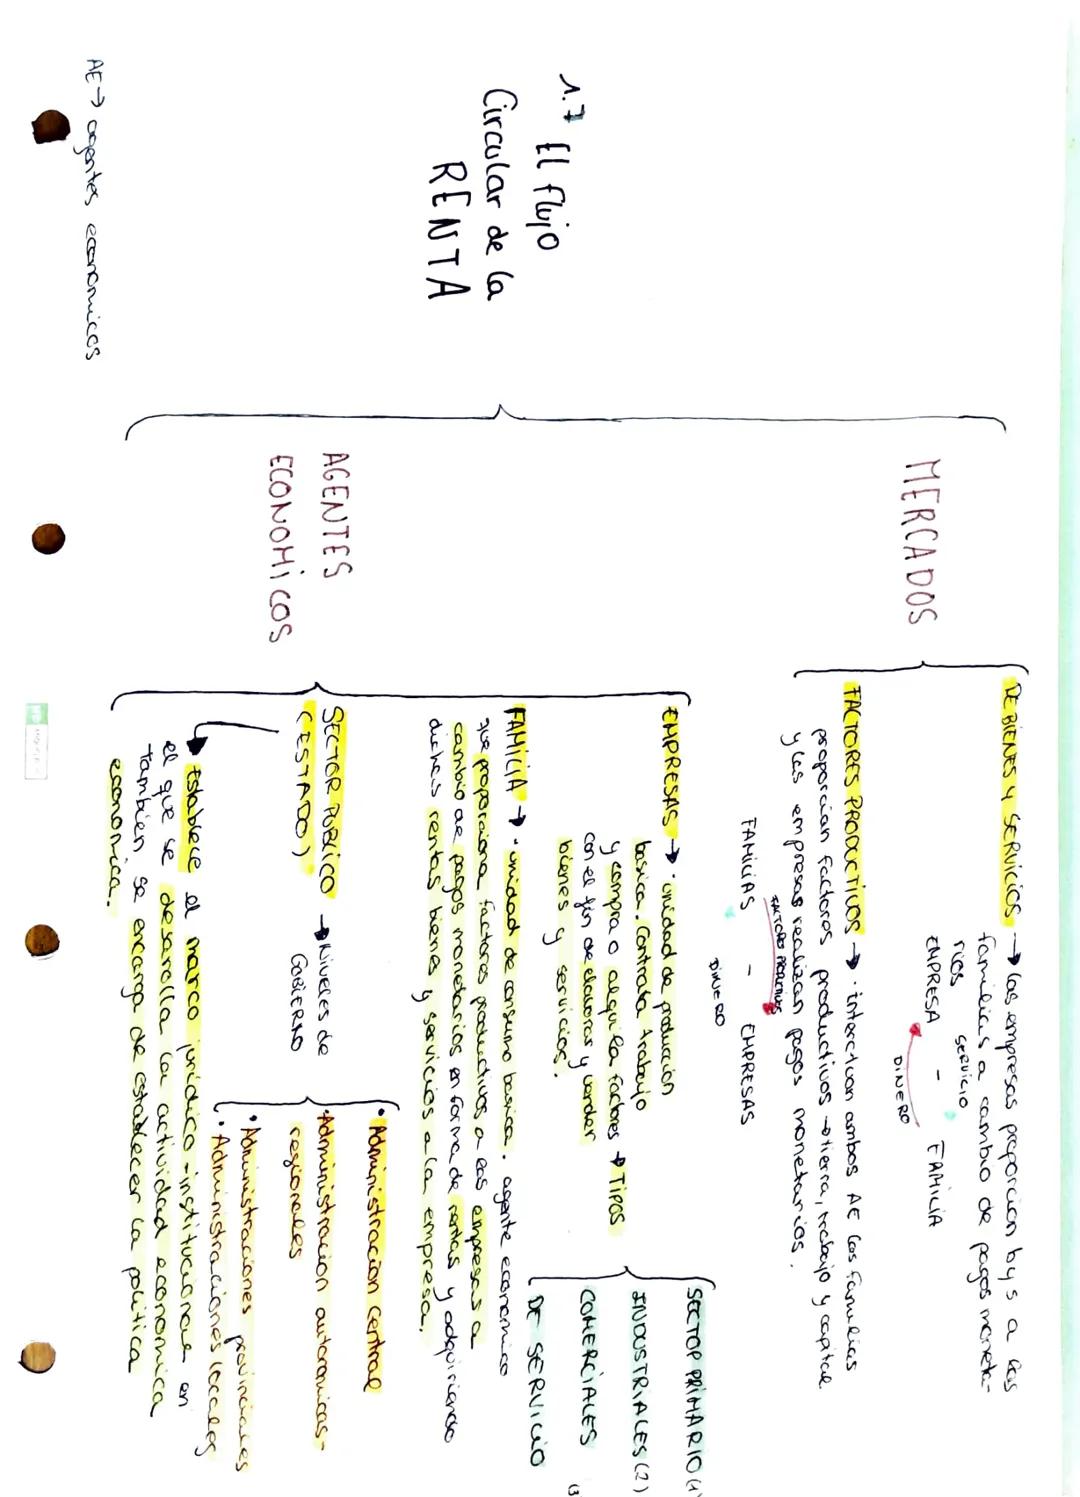 1.7 El flujo
Circular de la
RENTA
AE → agentes economicos
MERCADOS
DE BIENES Y SERVICIOS → las empresas proporcion b y s a las
familias a cambio de pagos moneta-
rios
SERVICIO
EMPRESA - FAMILIA
DINERO
FACTORES PRODUCTIVOS → · interactuan ambos AE las familias
proporcian factores productivos → tierra, trabajo y capital
y las empresas realizan pagos monetarios.
FACTORES PRODUCTIVOS
FAMILIAS - EMPRESAS
DINERO
AGENTES
ECONOMICOS
EMPRESAS → · unidad de produccion
basica. Contrata trabajo
y compra o alquila factores → TIPOS
con el fin de elaborar y vender
bienes y servicios.
SECTOR PRIMARIO (1)
INDUSTRIALES (2)
COMERCIALES
DE SERVICIO
(3
FAMILIA → · unidad de consumo basica. agente economico
que proporciona factores productivos a las empresas a
cambio de pagos monetarios en forma de rentas y adquiriendo
dichas rentas bienes y servicios a la empresa.
SECTOR PUBLICO → Niveles de
(ESTADO) GOBIERNO
· Administracion central
· Administracion autonomicas-
regionales
· Administraciones provinciales
· Administraciones locales
Establece el marco juridico-institucional en
el que se desarrolla la actividad economica
tambien se encarga de establecer la politica
economica.